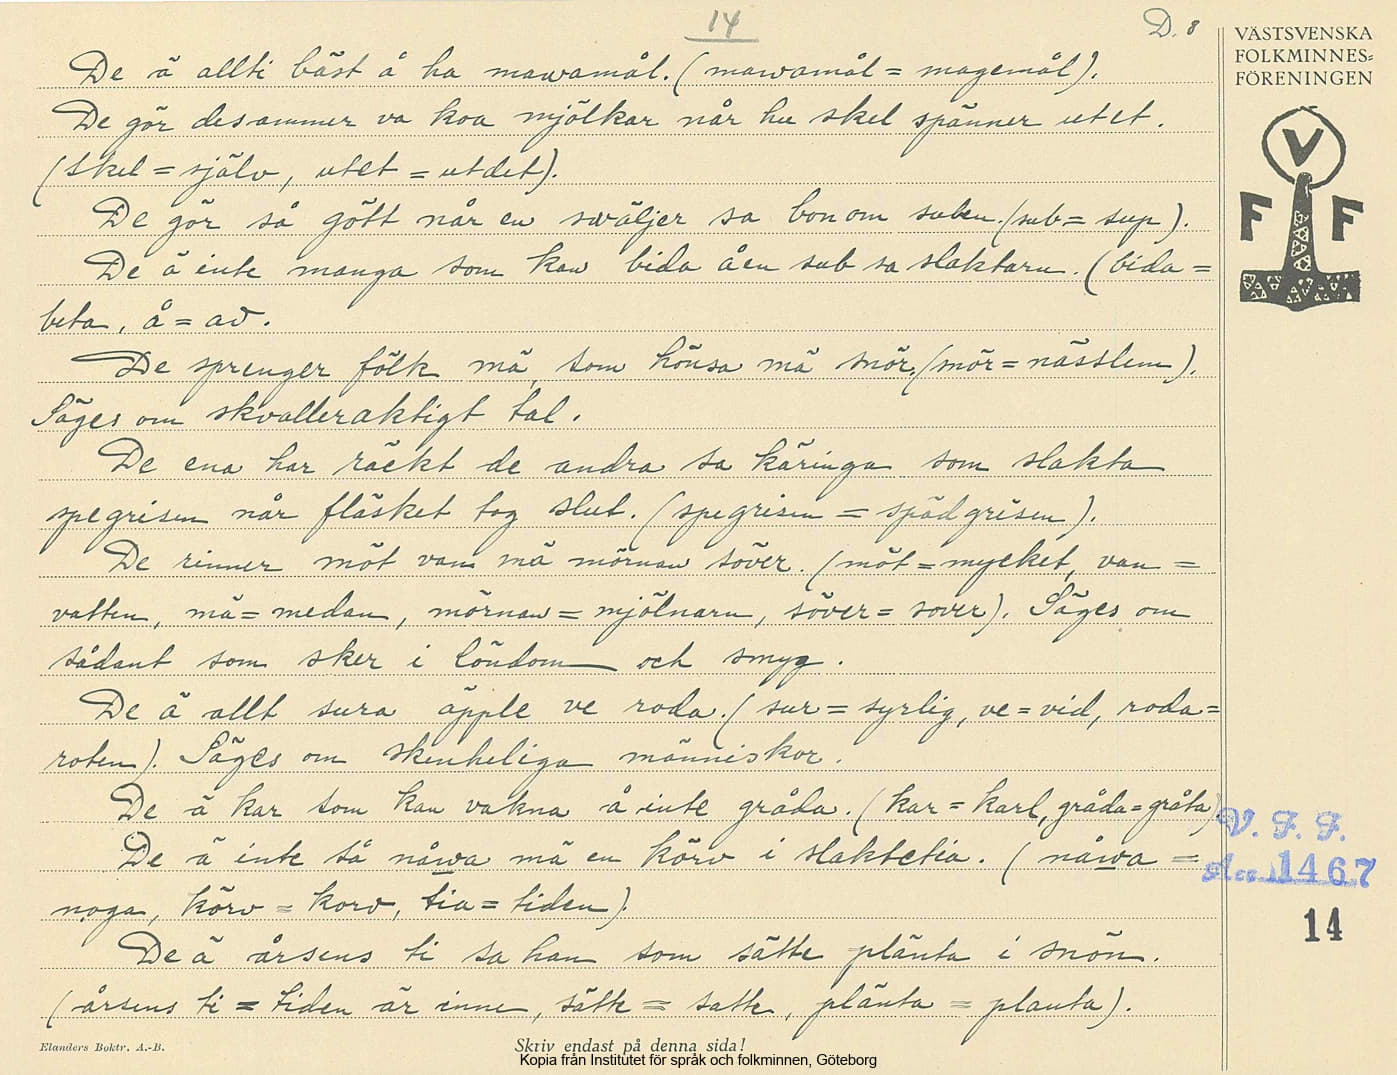 14
D. 8
VÄSTSVENSKA
FOLKMINNES=
FÖRENINGEN
V
F F
De ä allti bäst å ha mawamål. (mawamål = magemål).
De gör desammer va koa mjölkar når hu skel spänner utet.
(skel = själv, utet = utdet).
De gör så gött når en swäljer sa bonom suben. (sub = sup).
De ä inte manga som kan bida åen sub sa slaktarn. (bida =
beta, å = av.
De sprenger fölk mä som hönsa mä snör. (snör = nässlem).
Säges om skvalleraktigt tal.
De ena har räckt de andra sa käringa som slakta
spegrisen når fläsket tog slut. (spegrisen = spädgrisen).
De rinner möt van mä mörnan söver. (möt = mycket, van =
vatten, mä = medan, mörnan = mjölnarn, söver = sover). Säges om
sådant som sker i löndom och smyg.
De ä allt sura äpple ve roda. (sur = syrlig, ve = vid, roda =
roten). Säges om skenheliga människor.
De ä kar som kan vakna å inte gråda. (kar = karl, gråda = gråta)
De ä inte så nåwa mä en körv i slaktetia. (nåwa =
noga, körv = korv, tia = tiden).
De ä årsens ti sa han som sätte plänta i snön.
(årsens ti = tiden är inne, sätte = satte, plänta = planta).
V. F. F.
Acc. 1467
14
Elanders Boktr. A.-B.
Skriv endast på denna sida!
Kopia från Institutet för språk och folkminnen, Göteborg